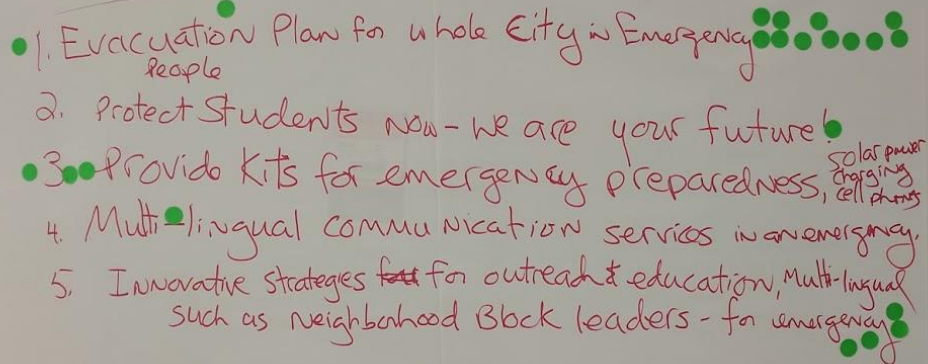 1. Evacuation Plan for whole City in Emergency
People
2. Protect Students Now - we are your future!
3. Provide Kits for emergency preparedness, solar power charging cell phones
4. Multi-lingual communication services in an emergency.
5. Innovative strateges for outreach & education, Multi-lingual
such as Neighborhood Block leaders - for emergency